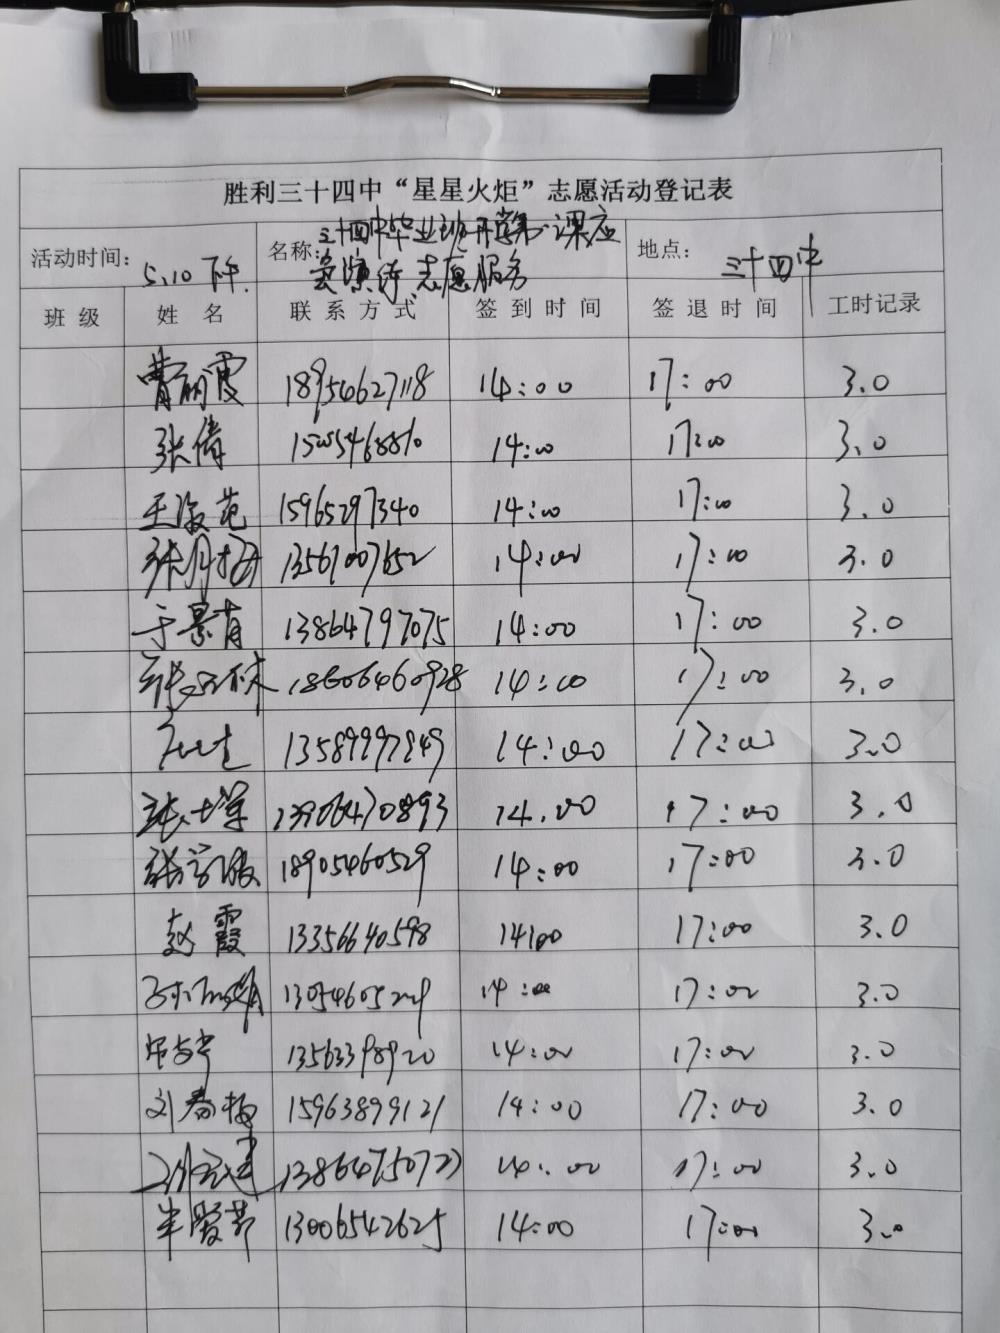 胜利三十四中“星星火炬”志愿活动登记表
活动时间: 5.10 下午. 名称: 三十四中毕业班开学第一课应急演练志愿服务 地点: 三十四中
班 级 姓 名 联 系 方 式 签 到 时 间 签 退 时 间 工时记录
曹丽霞 18954627118 14:00 17:00 3.0
张倩 14:00 17:00 3.0
王淑苑 15965297340 14:00 17:00 3.0
张月梅 14:00 17:00 3.0
于景肖 13864797075 14:00 17:00 3.0
18606460928 14:00 17:00 3.0
13589997849 14:00 17:00 3.0
13906470893 14.00 17:00 3.0
18905460529 14:00 17:00 3.0
赵霞 13356640598 14:00 17:00 3.0
14:00 17:00 3.0
13563398920 14:00 17:00 3.0
刘春梅 15963899121 14:00 17:00 3.0
14:00 17:00 3.0
13006542625 14:00 17:00 3.0